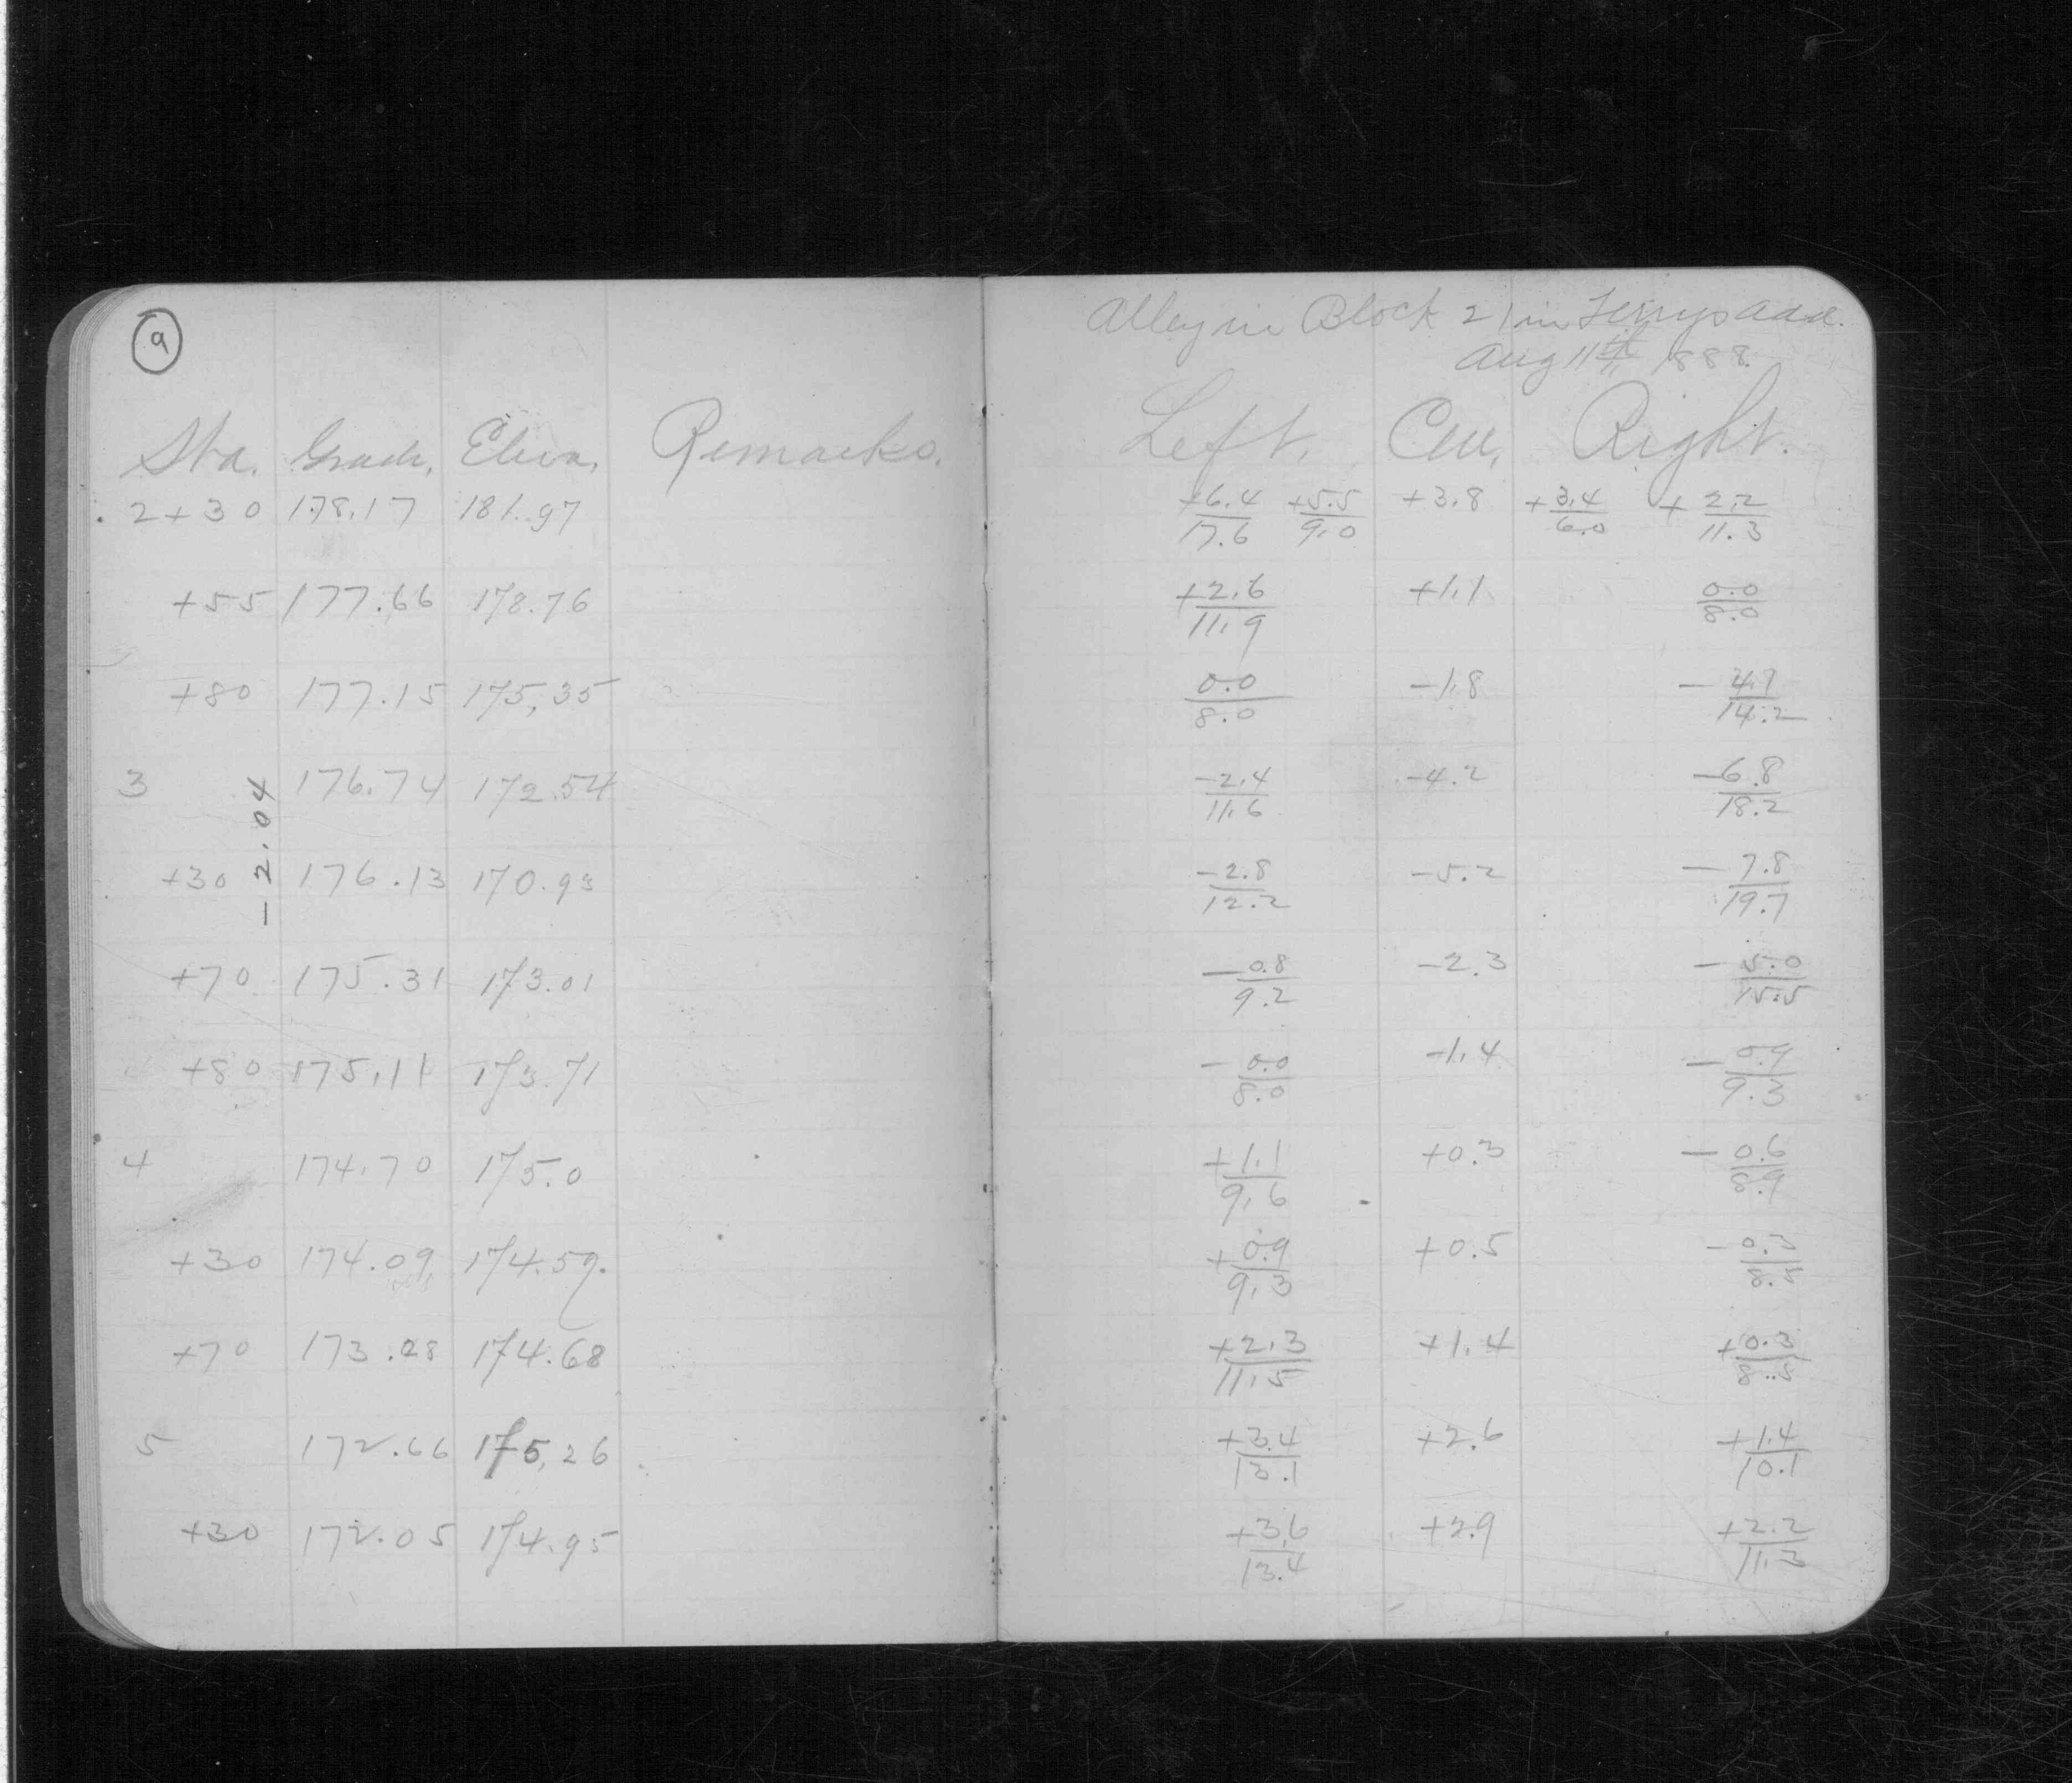 9
Alley in Block 21 in Terrys Add.
Aug 11th 1888.
Sta. Grade. Eleva. Remarks. Left. Cen. Right.
2+30 178.17 181.97 +6.4/17.6 +5.5/9.0 +3.8 +3.4/6.0 +2.2/11.3
+55 177.66 178.76 +2.6/11.9 +1.1 0.0/8.0
+80 177.15 175.35 0.0/8.0 -1.8 -4.1/14.2
3 176.74 172.54 -2.4/11.6 -4.2 -6.8/18.2
-2.04
+30 176.13 170.93 -2.8/12.2 -5.2 -7.8/19.7
+70 175.31 173.01 -0.8/9.2 -2.3 -5.0/15.5
+80 175.11 173.71 -0.0/8.0 -1.4 -0.9/9.3
4 174.70 175.0 +1.1/9.6 +0.3 -0.6/8.9
+30 174.09 174.59. +0.9/9.3 +0.5 -0.3
+70 173.28 174.68 +2.3/11.5 +1.4 +0.3
5 172.66 175.26 +3.4/13.1 +2.6 +1.4/10.1
+30 172.05 174.95 +3.6/13.4 +2.9 +2.2/11.3